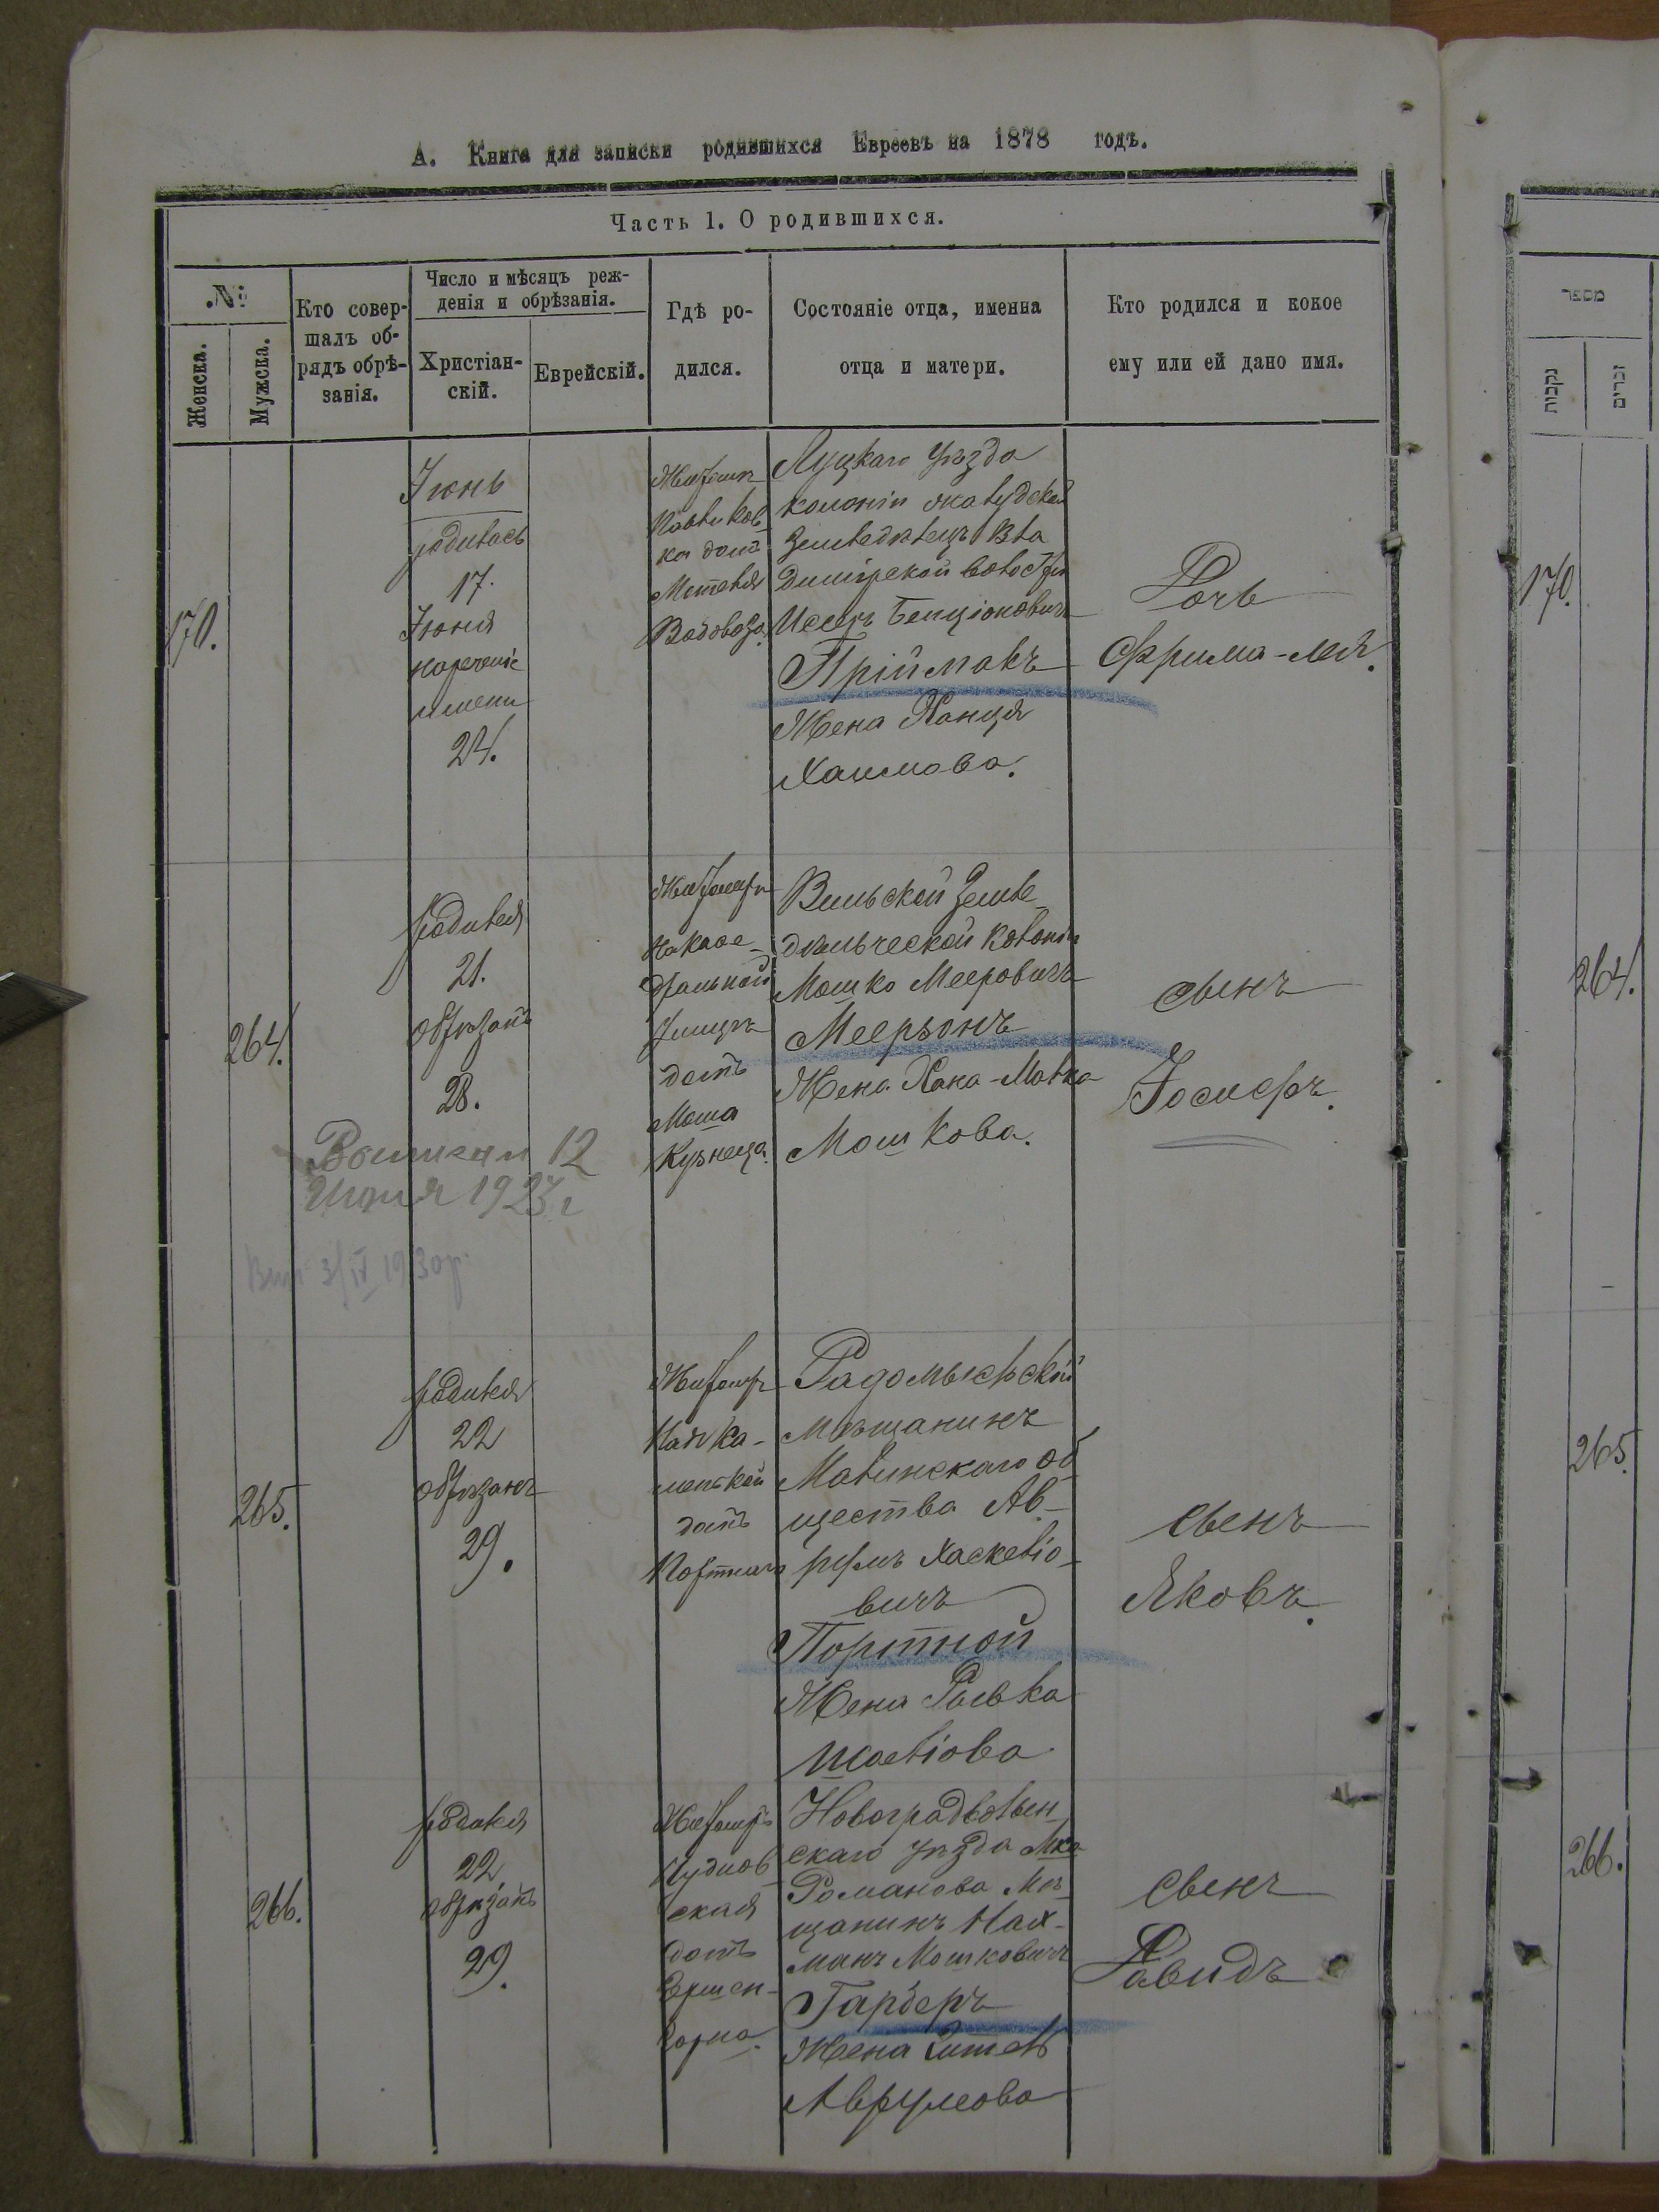 А. Книга для записки родившихся Евреевъ на 1878 годъ.
Часть 1. О родившихся.
№
Женска.
Мужска.
Кто совер-
шалъ об-
рядъ обрѣ-
занія.
Число и мѣсяцъ реж-
денія и обрѣзанія.
Христіан-
скій.
Еврейскій.
Гдѣ ро-
дился.
Состояніе отца, именна
отца и матери.
Кто родился и кокое
ему или ей дано имя.
170.
Іюнь
родилась
17.
Іюня
нареченіе
имени
24.
Житомир
Павликов-
ка домъ
Водовоза.
Луцкаго уѣзда
колоніи
Земледѣлецъ Вла
димірской волости
Иссеръ Бенціоновичъ
Пріймакъ
Жена Ханця
Хаимова.
Дочь
Фрима-Лея.
264.
родился
21.
обрѣзанъ
28.
Житомиръ
На каѳе-
дральной
улицѣ
домъ
Мошка
Кузнеца.
Вильской Земле-
дѣльческой колоніи
Мошко Мееровичъ
Меерзонъ
Жена Хана-Малка
Мошкова.
сынъ
Іосифъ.
Выписан 12
Июля 1923 г
Вып 3/IV 1930 р.
265.
родился
22
обрѣзанъ
29.
Житомиръ
мѣнской
домъ
Портнаго
Радомысльскій
мѣщанинъ
Малинскаго об
щества Ав-
румъ Хаскеліо-
вичъ
Портной
Жена Рывка
Шаеліова
сынъ
Яковъ.
266.
родился
22
обрѣзанъ
29.
Житомиръ
Чуднов-
ская
домъ
Ершен-
горна.
Новоградволын-
скаго уѣзда Мка
Романова Мѣ-
щанинъ Нах-
манъ Мошковичъ
Гарберъ
Жена
Аврумова
сынъ
Давидъ
מספר
נקבות
זכרים
170.
264.
265.
266.